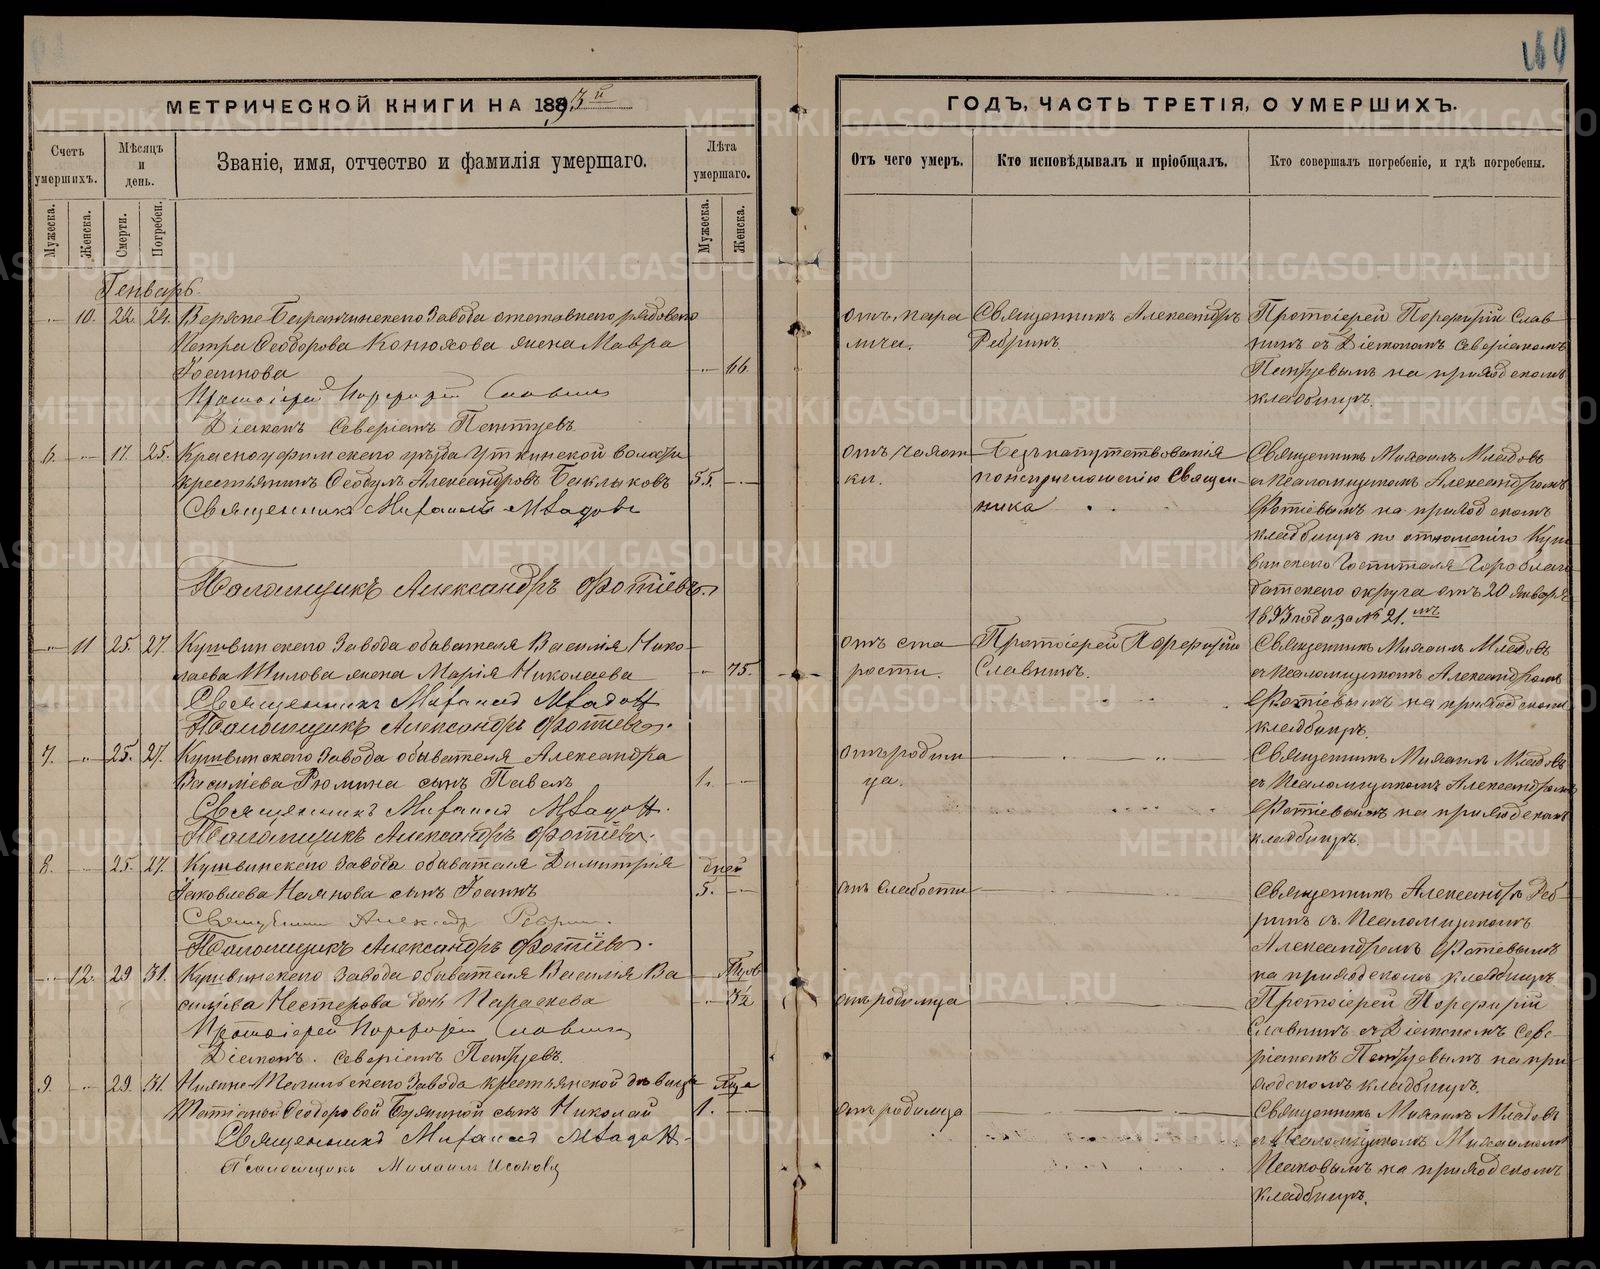 169
МЕТРИЧЕСКОЙ КНИГИ НА 1893й
ГОДЪ, ЧАСТЬ ТРЕТІЯ, О УМЕРШИХЪ.
Счетъ умершихъ.
Мѣсяцъ и день.
Званіе, имя, отчество и фамилія умершаго.
Лѣта умершаго.
Отъ чего умеръ.
Кто исповѣдывалъ и пріобщалъ.
Кто совершалъ погребеніе, и гдѣ погребены.
Мужеска.
Женска.
Смерти.
Погребен.
Мужеска.
Женска.
Генварь.
10. 22. 24. Верхне-Баранчинскаго Завода отставнаго рядоваго
Петра Ѳеодорова Конюхова жена Мавра
Іоаннова 66.
Протоіерей Порфирій Славнинъ
Діаконъ Северіанъ Пентуевъ
отъ пара
лича.
Священникъ Александръ
Ребринъ
Протоіерей Порфирій Слав
нинъ съ Діакономъ Северіаномъ
на приходскомъ
кладбищѣ.
6. 17. 25. Красноуфимскаго уѣзда Уткинской волости
крестьянинъ Ѳеодулъ Александровъ Баклыковъ 55.
Священникъ Михаилъ Младовъ
Псаломщикъ Александръ Фотіевъ
отъ чахот
ки.
Безъ напутствованія
по неприглашенію Священ
ника
Священникъ Михаилъ Младовъ
съ Псаломщикомъ Александромъ
Фотіевымъ на приходскомъ
кладбищѣ по отношенію Куш
винскаго Госпиталя Гороблаго
датскаго округа отъ 20 Января
1893 года за № 21.мъ
11 25. 27. Кушвинскаго Завода обывателя Василія Нико
лаева Шилова жена Марія Николаева 75.
Священникъ Михаилъ Младовъ
Псаломщикъ Александръ Фотіевъ.
отъ ста
рости.
Протоіерей Порфирій
Славнинъ.
Священникъ Михаилъ Младовъ
съ Псаломщикомъ Александромъ
Фотіевымъ на приходскомъ
кладбищѣ.
7. 25. 27. Кушвинскаго Завода обывателя Александра
Васильева Рюмина сынъ Павелъ 1.
Священникъ Михаилъ Младовъ.
Псаломщикъ Александръ Фотіевъ.
отъ родим
ца.
Священникъ Михаилъ Младовъ
съ Псаломщикомъ Александромъ
Фотіевымъ на приходскомъ
кладбищѣ.
8. 25. 27. Кушвинскаго Завода обывателя Димитрія дней
Іаковлева сынъ Іоаннъ 5.
Священникъ Александръ Ребринъ.
Псаломщикъ Александръ Фотіевъ.
отъ слабости
Священникъ Александръ Реб
ринъ съ Псаломщикомъ
Александромъ Фотіевымъ
на приходскомъ кладбищѣ
12. 29 31. Кушвинскаго Завода обывателя Василія Ва
сильева Нестерова дочь Параскева 3½
Протоіерей Порфирій Славнинъ
Діаконъ Северіанъ Пентуевъ.
отъ родимца
Протоіерей Порфирій
Славнинъ съ Діакономъ Севе
ріаномъ на при
ходскомъ кладбищѣ.
9. 29. 31. Нижне-Тагильскаго Завода крестьянской дѣвицы Года
Татіаны Ѳеодоровой сынъ Николай 1.
Священникъ Михаилъ Младовъ.
Псаломщикъ Михаилъ Исаковъ
отъ родимца
Священникъ Михаилъ Младовъ
съ Псаломщикомъ Михаиломъ
Исаковымъ на приходскомъ
кладбищѣ.
METRIKI.GASO-URAL.RU